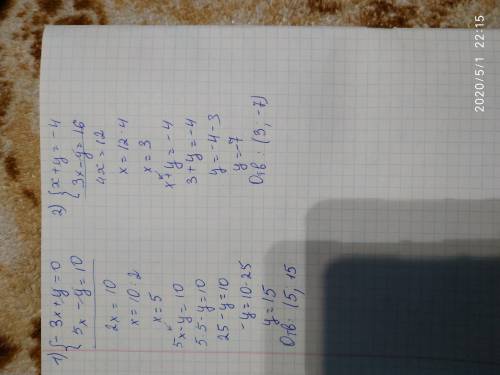 1) { -3x+y=0
{ 5x-y=10
2x=10
x=10:2
x=5
5x-y=10
5·5-y=10
25-y=10
-y=10-25
y=15
Отв: (5, 15
2) { x+y=-4
{ 3x-y=16
4x=12
x=12·4
x=3
x+y=-4
3+y=-4
y=-4-3
y=-7
Отв: (3; -7)
2020/5/1 22:15